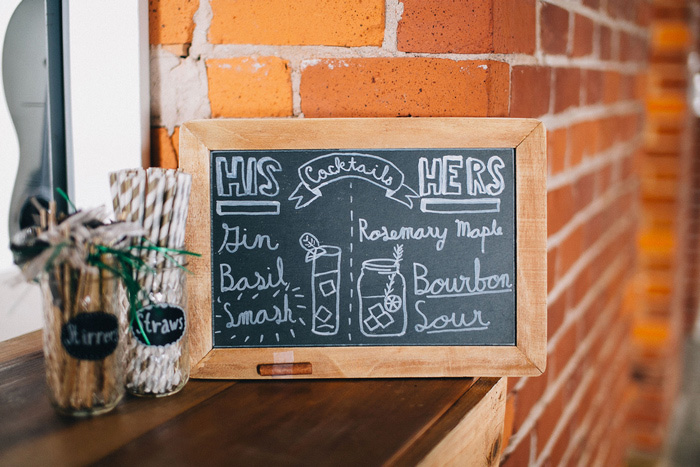 HIS
Cocktails
HERS
Gin
Basil
Smash
Rosemary Maple
Bourbon
Sour
Stirrers
Straws